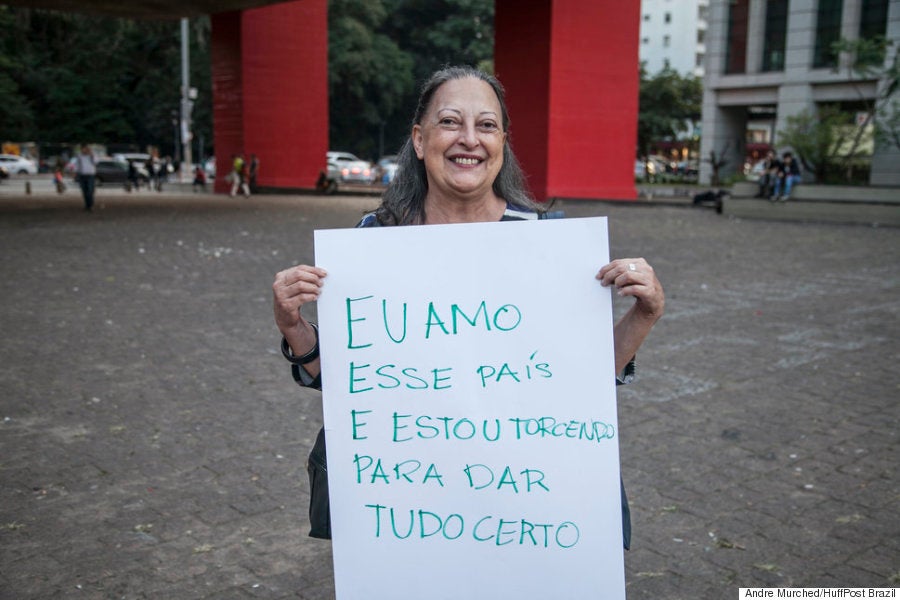 EU AMO
ESSE PAÍS
E ESTOU TORCENDO
PARA DAR
TUDO CERTO
Andre Murched/HuffPost Brazil